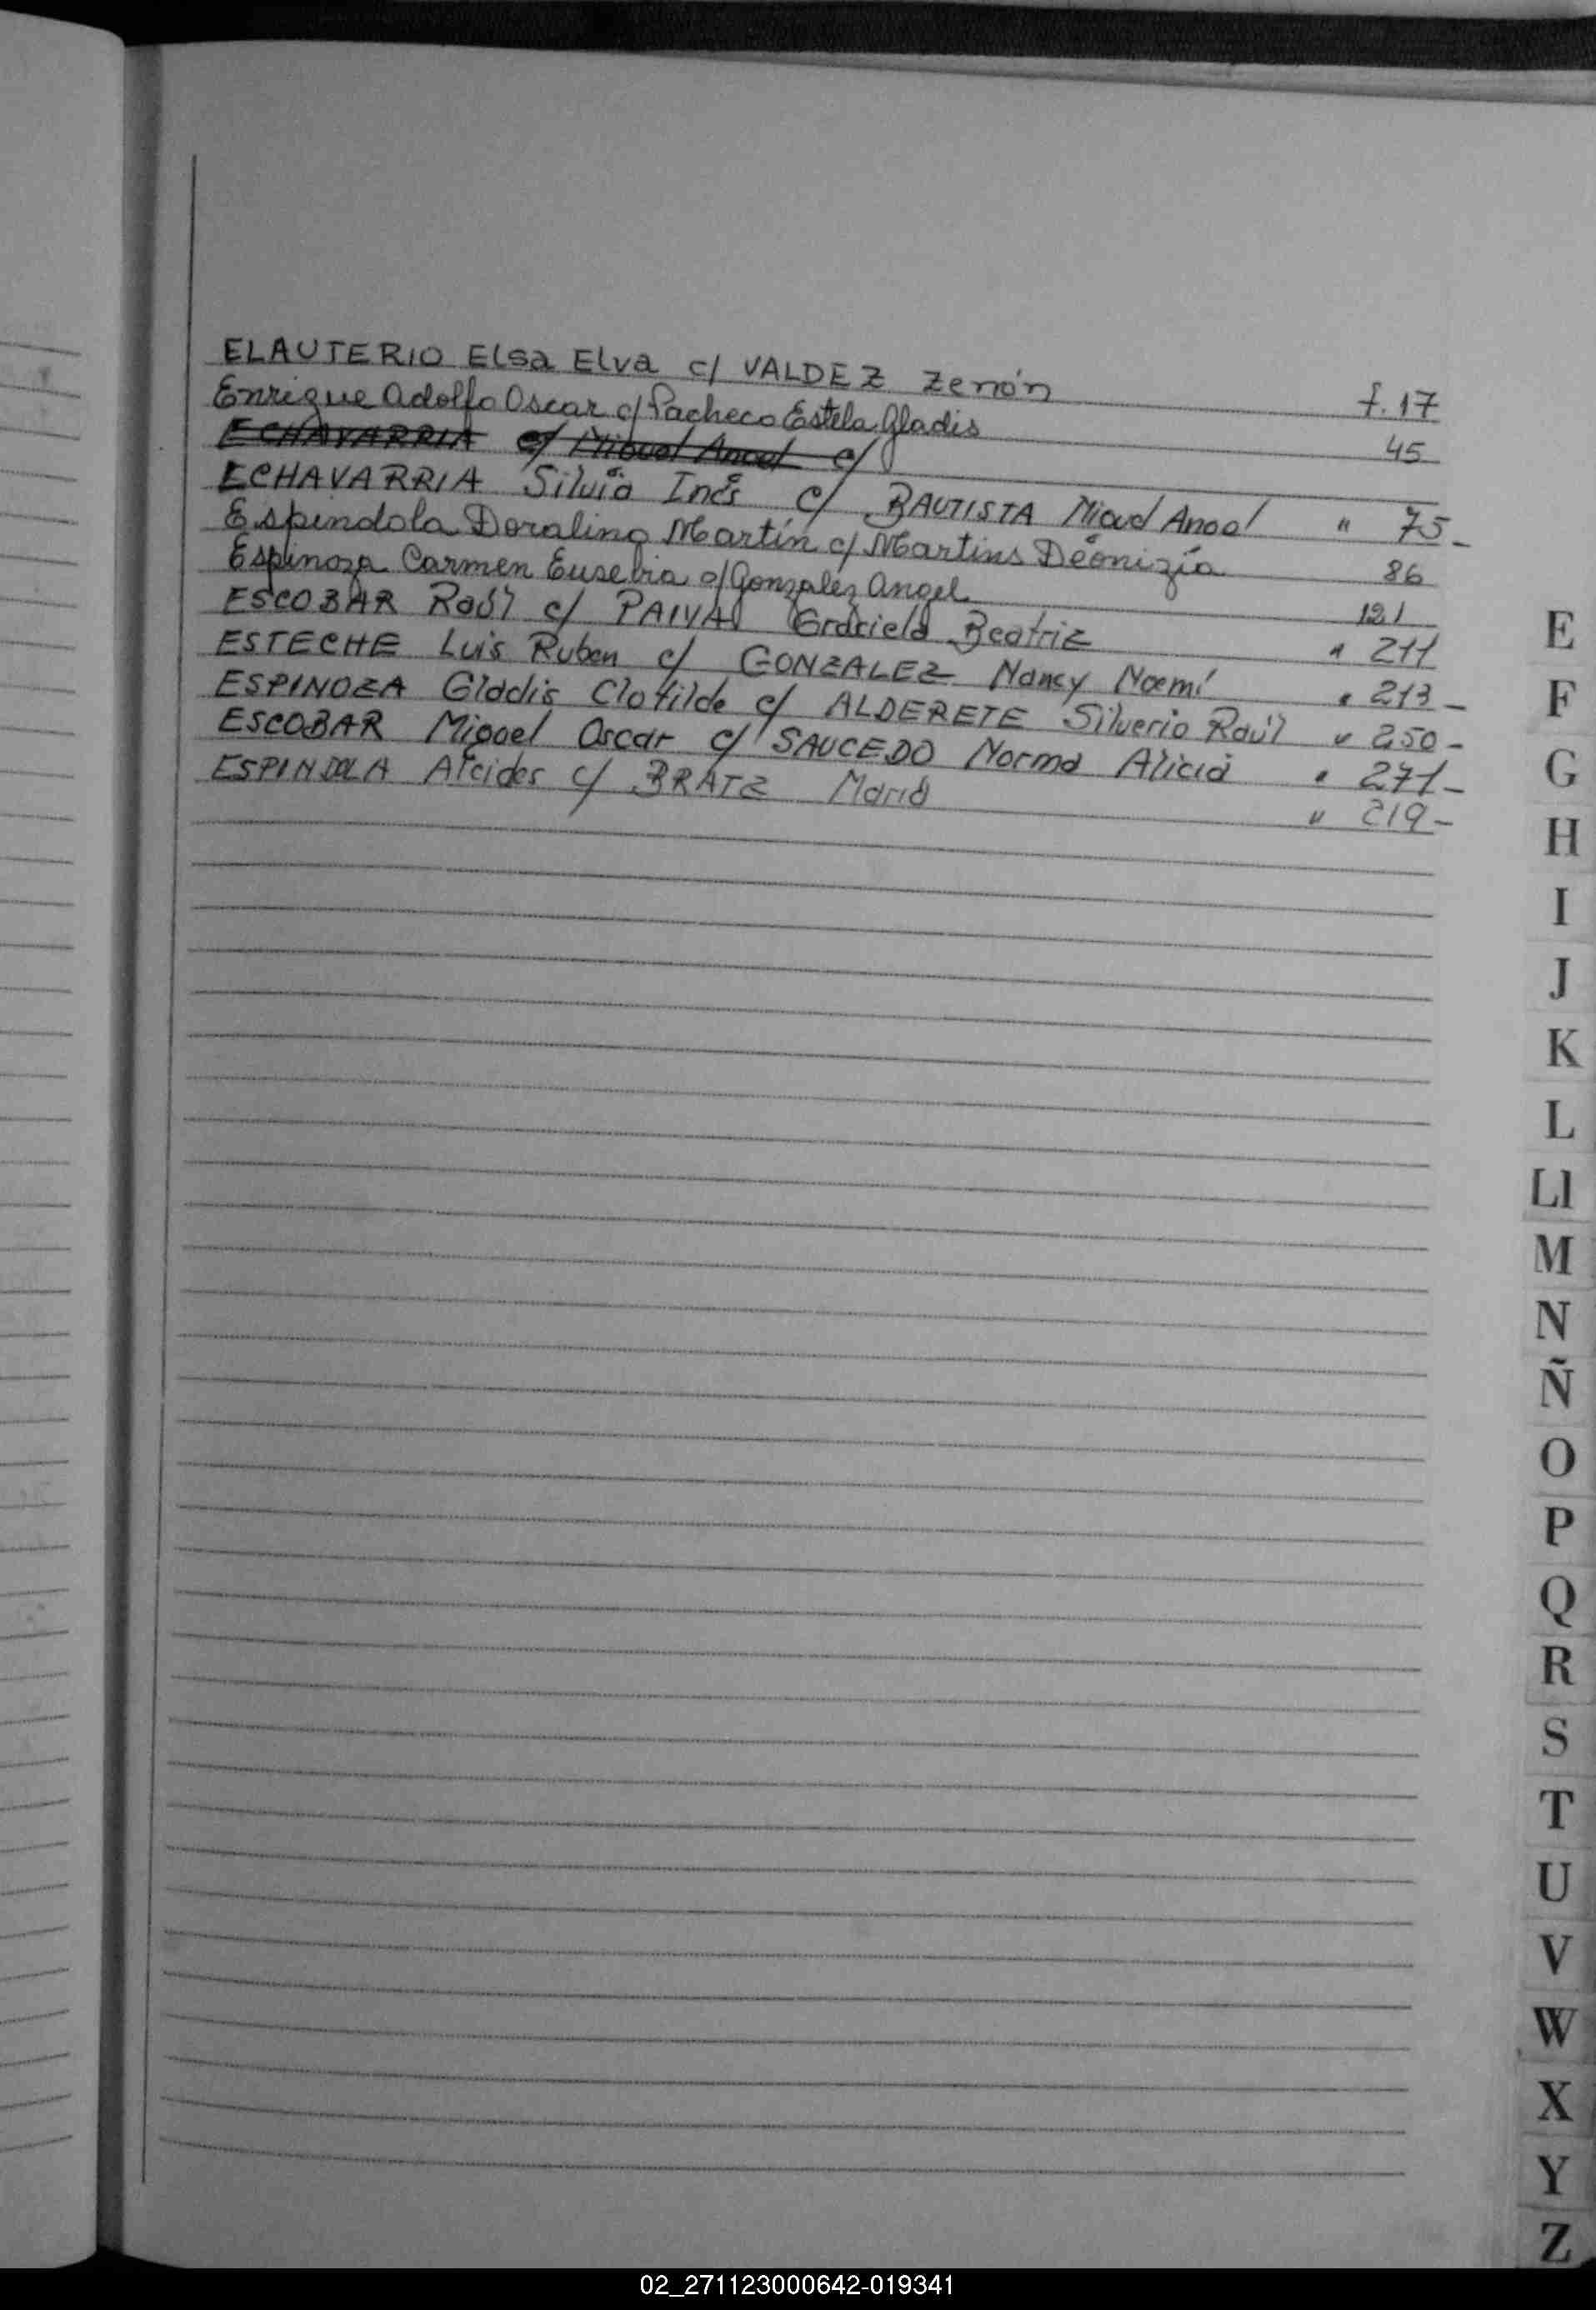 ELAUTERIO Elsa Elva c/ VALDEZ Zenón f. 17
Enrique Adolfo Oscar c/ Pacheco Estela Gladis 45
ECHAVARRIA c/ Miguel Angel c/
ECHAVARRIA Silvia Inés c/ BAUTISTA Miguel Angel " 75-
Espindola Doralino Martín c/ Martins Deonizia 86
Espinoza Carmen Eusebia c/ Gonzalez Angel 121
ESCOBAR Raúl c/ PAIVA Graciela Beatriz " 211
ESTECHE Luis Ruben c/ GONZALEZ Nancy Noemí " 213-
ESPINOZA Gladis Clotilde c/ ALDERETE Silverio Raúl " 250-
ESCOBAR Miguel Oscar c/ SAUCEDO Norma Alicia " 271-
ESPINDOLA Alcides c/ BRATZ Maria " 219-
E
F
G
H
I
J
K
L
Ll
M
N
Ñ
O
P
Q
R
S
T
U
V
W
X
Y
Z
02_271123000642-019341